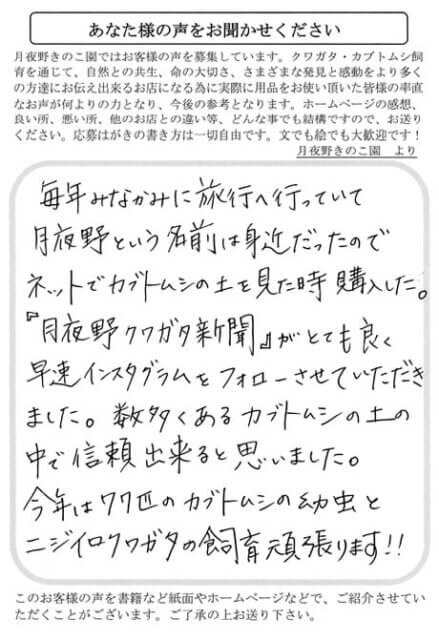 あなた様の声をお聞かせください
月夜野きのこ園ではお客様の声を募集しています。クワガタ・カブトムシ飼
育を通じて、自然との共生、命の大切さ、さまざまな発見と感動をより多く
の方達にお伝え出来るお店になる為に実際に用品をお使い頂いた皆様の率直
なお声が何よりの力となり、今後の参考となります。ホームページの感想、
良い所、悪い所、他のお店との違い等、どんな事でも結構ですので、お送り
ください。応募はがきの書き方は一切自由です。文でも絵でも大歓迎です！
月夜野きのこ園　より
毎年みなかみに旅行へ行っていて
月夜野という名前は身近だったので
ネットでカブトムシの土を見た時購入した。
『月夜野クワガタ新聞』がとても良く
早速インスタグラムをフォローさせていただき
ました。数多くあるカブトムシの土の
中で信頼出来ると思いました。
今年は77匹のカブトムシの幼虫と
ニジイロクワガタの飼育頑張ります!!
このお客様の声を書籍など紙面やホームページなどで、ご紹介させてい
ただくことがございます。ご了承の上お送り下さい。